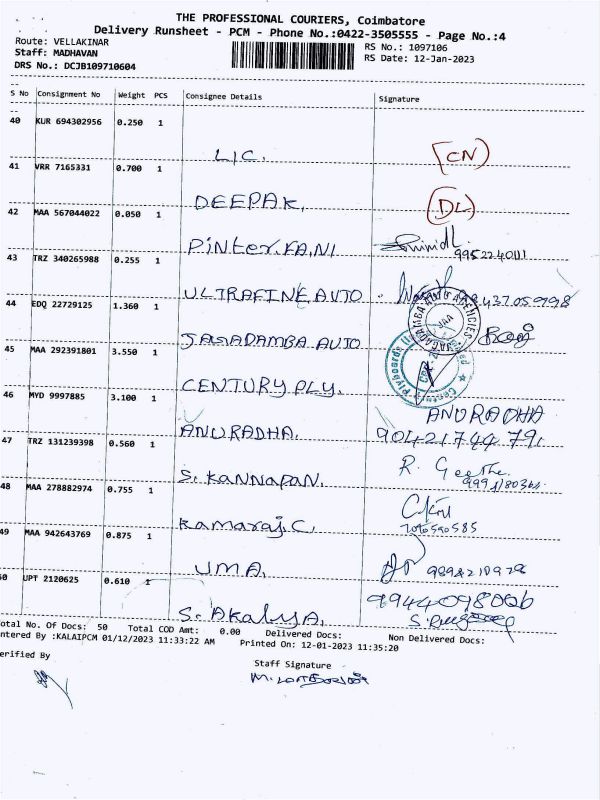 THE PROFESSIONAL COURIERS, Coimbatore
Delivery Runsheet - PCM - Phone No.:0422-3505555 - Page No.:4
Route: VELLAKINAR
RS No.: 1097106
Staff: MADHAVAN
RS Date: 12-Jan-2023
DRS No.: DCJB109710604
S No Consignment No Weight PCS Consignee Details Signature
40 KUR 694302956 0.250 1
LIC. (CN)
41 VRR 7165331 0.700 1
DEEPAK. (DL)
42 MAA 567044022 0.050 1
43 TRZ 340265988 0.255 1
ULTRAFINE AUTO
44 EDQ 22729125 1.360 1
JAGADAMBA AUTO
45 MAA 292391801 3.550 1
CENTURY PLY.
46 MYD 9997885 3.100 1
ANURADHA
ANURADHA. 9042174479
47 TRZ 131239398 0.560 1
S. KANNAPAN. R. Geetha.
48 MAA 278882974 0.755 1
Kamaraj.C.
49 MAA 942643769 0.875 1
UMA.
50 UPT 2120625 0.610 1
9944098006
S. Akalya.
Total No. Of Docs: 50 Total COD Amt: 0.00 Delivered Docs: Non Delivered Docs:
ntered By :KALAIPCM 01/12/2023 11:33:22 AM Printed On: 12-01-2023 11:35:20
erified By
Staff Signature